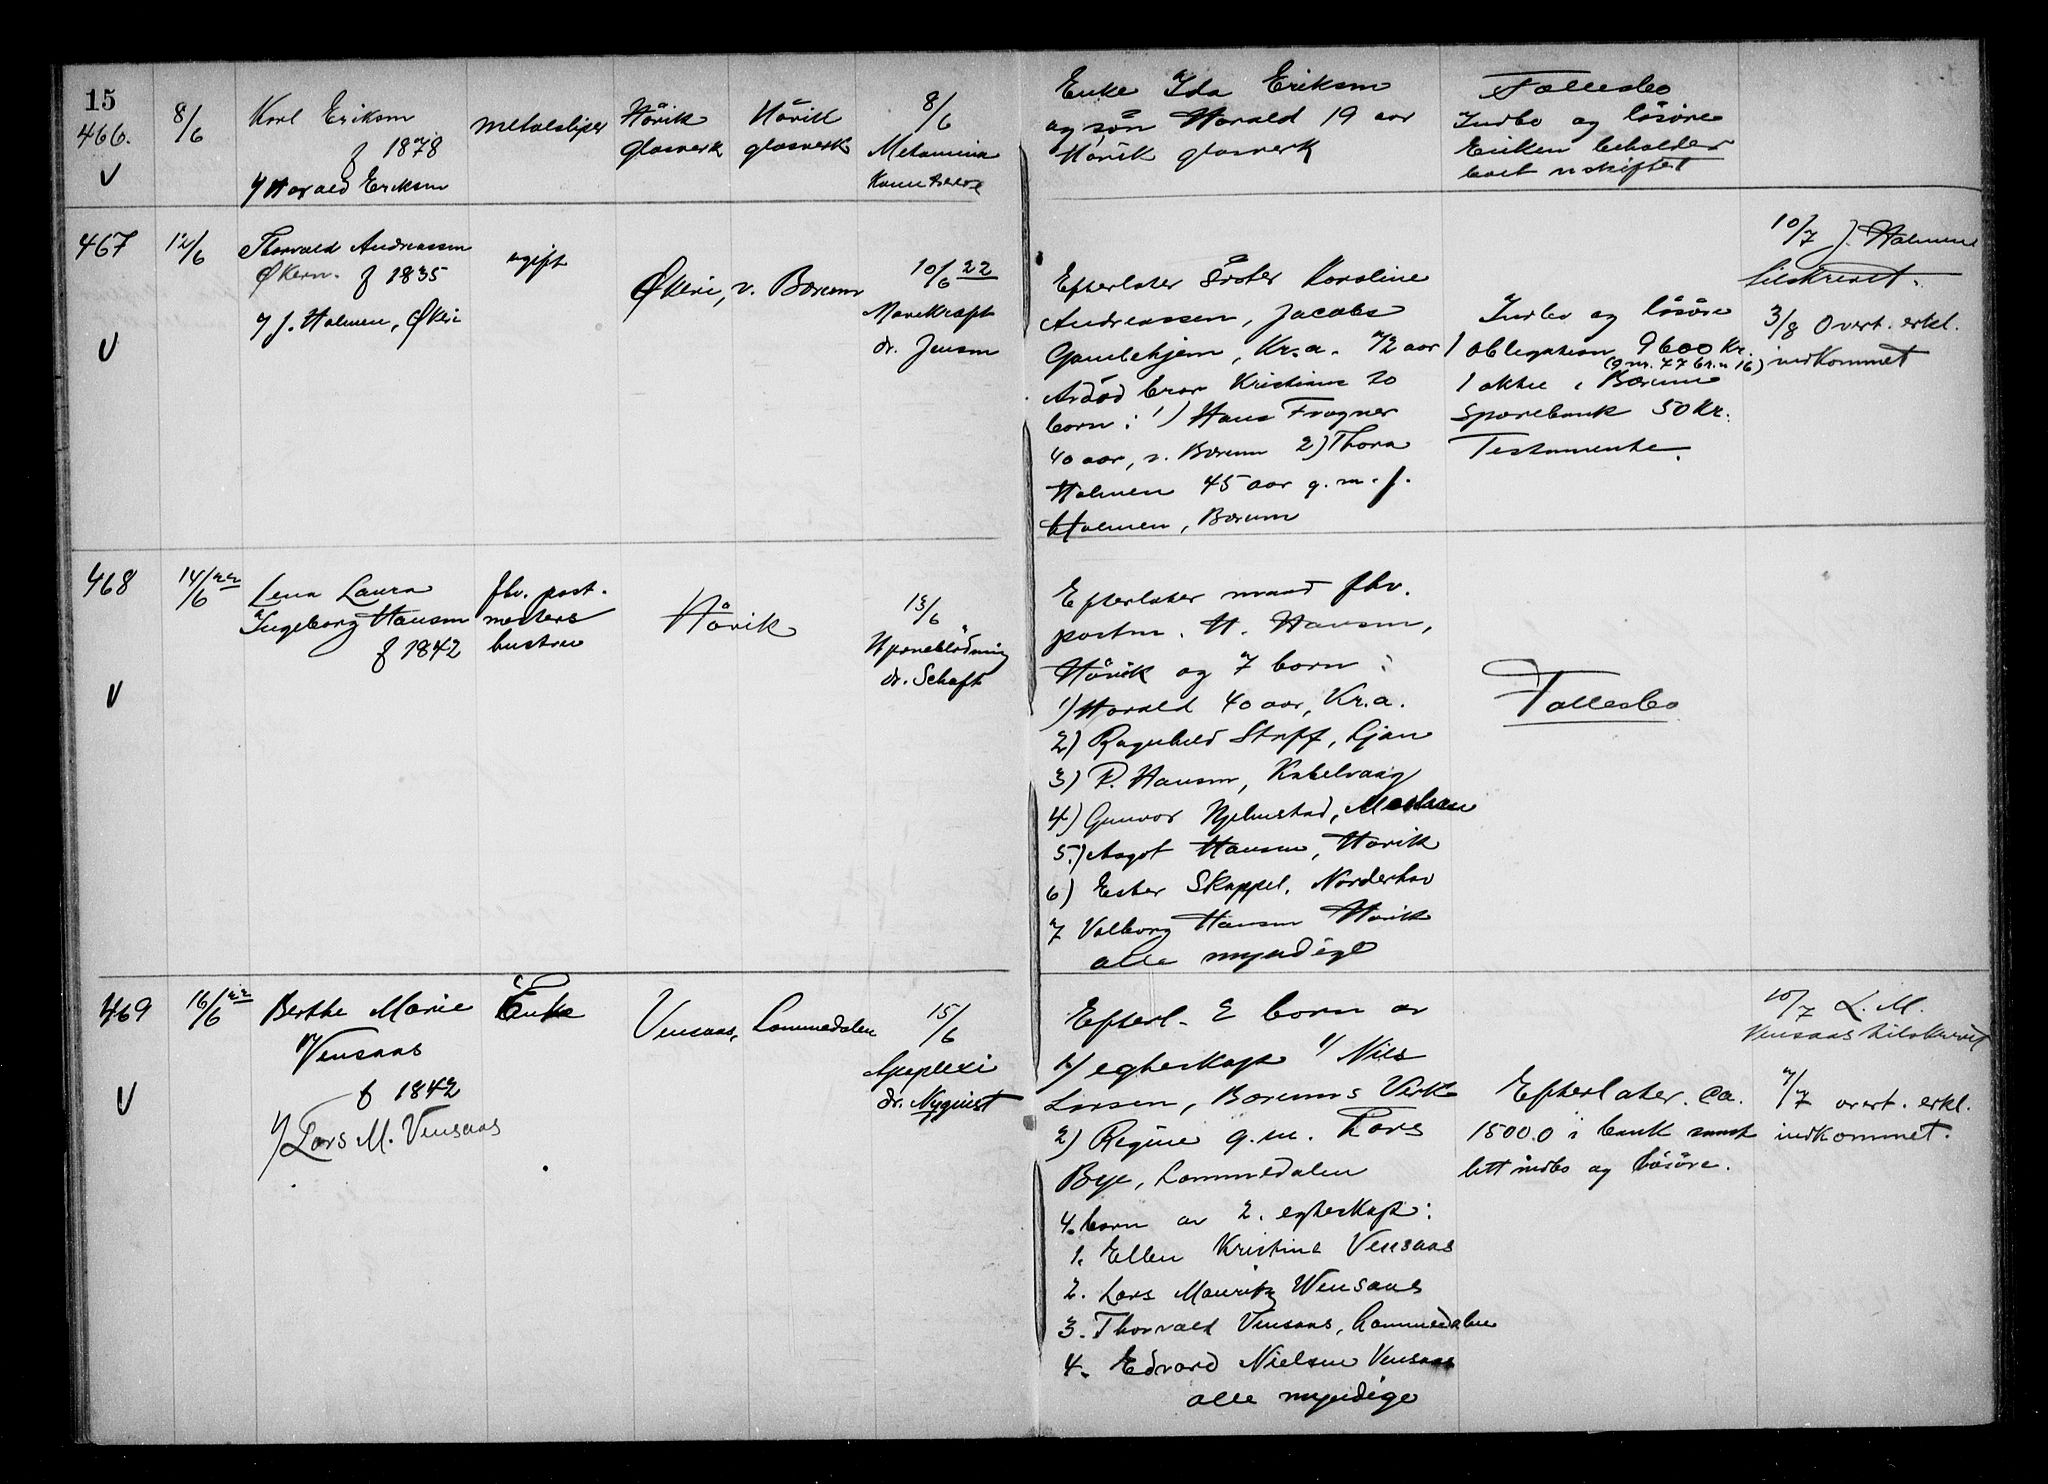 15
466.
V
8/6
Karl Eriksen
f 1878
v/ Harald Eriksen
metalsliper
Hövik
glasverk
Hövik
glasverk
8/6
Enke Ida Eriksen
og søn Harald 19 aar
Hövik glasverk
Fællesbo
Indbo og lösöre
Enken beholder
boet uskiftet
467
V
12/6
Thorvald Andreassen
Økern. f 1835
v/ J. Holmen, Økeri
ugift
Økeri, v. Bærum
10/6 22
Mavekræft
dr. Jensen
Efterlater söster Karoline
Andreassen, Jacobs
Gamlehjem, Kr.a. 72 aar
Avdöd bror Kristians 2o
born: 1) Hans Frogner
40 aar, v. Bærum 2) Thora
Holmen 45 aar g. m. J.
Holmen, Bærum
Indbo og lösöre
1 obligation 9600 Kr.
(g.nr. 77 br.n 16)
1 aktie i Bærums
Sparebank 50 Kr.
Testamente.
10/7 J. Holmen
tilskrevet.
3/8 Overt. erkl.
indkommet
468
V
14/6 22
Lena Laura
Ingeborg Hansen
f 1842
fhv. post-
mesters
hustru
Hövik
13/6
Hjerneblödning
dr. Schaft
Efterlater mand fhv.
postm. H. Hansen,
Hövik og 7 born:
1) Harald 40 aar, Kr.a.
2) Ragnhild Stoff, Ljan
3) P. Hansen, Kabelvaag
4) Gunvor Hjelmstad,
5.) Aagot Hansen, Hövik
6) Ester Skappel, Norderhov
7 Valborg Hansen Hövik
alle myndige
Fællesbo
469
V
16/6 22
Berthe Marie
Vensaas
f 1842
v/ Lars M. Vensaas
Enke
Vensaas, Lommedalen
15/6
Apoplexi
dr. Nyquist
Efterl. 2 born av
1./ egteskap 1/ Nils
Larsen, Bærums Verk
2) Regine g.m. Lars
Bye, Lommedalen
4. born av 2. egteskap:
1. Ellen Kristine Vensaas
2. Lars Mauritz Wensaas
3. Thorvald Vensaas, Lommedalen
4. Edvard Nielsen Vensaas
alle myndige
Efterlater. ca.
1500.0 i bank samt
litt indbo og lösöre.
10/7 L. M.
Vensaas tilskrevet
7/7 overt. erkl.
indkommet.